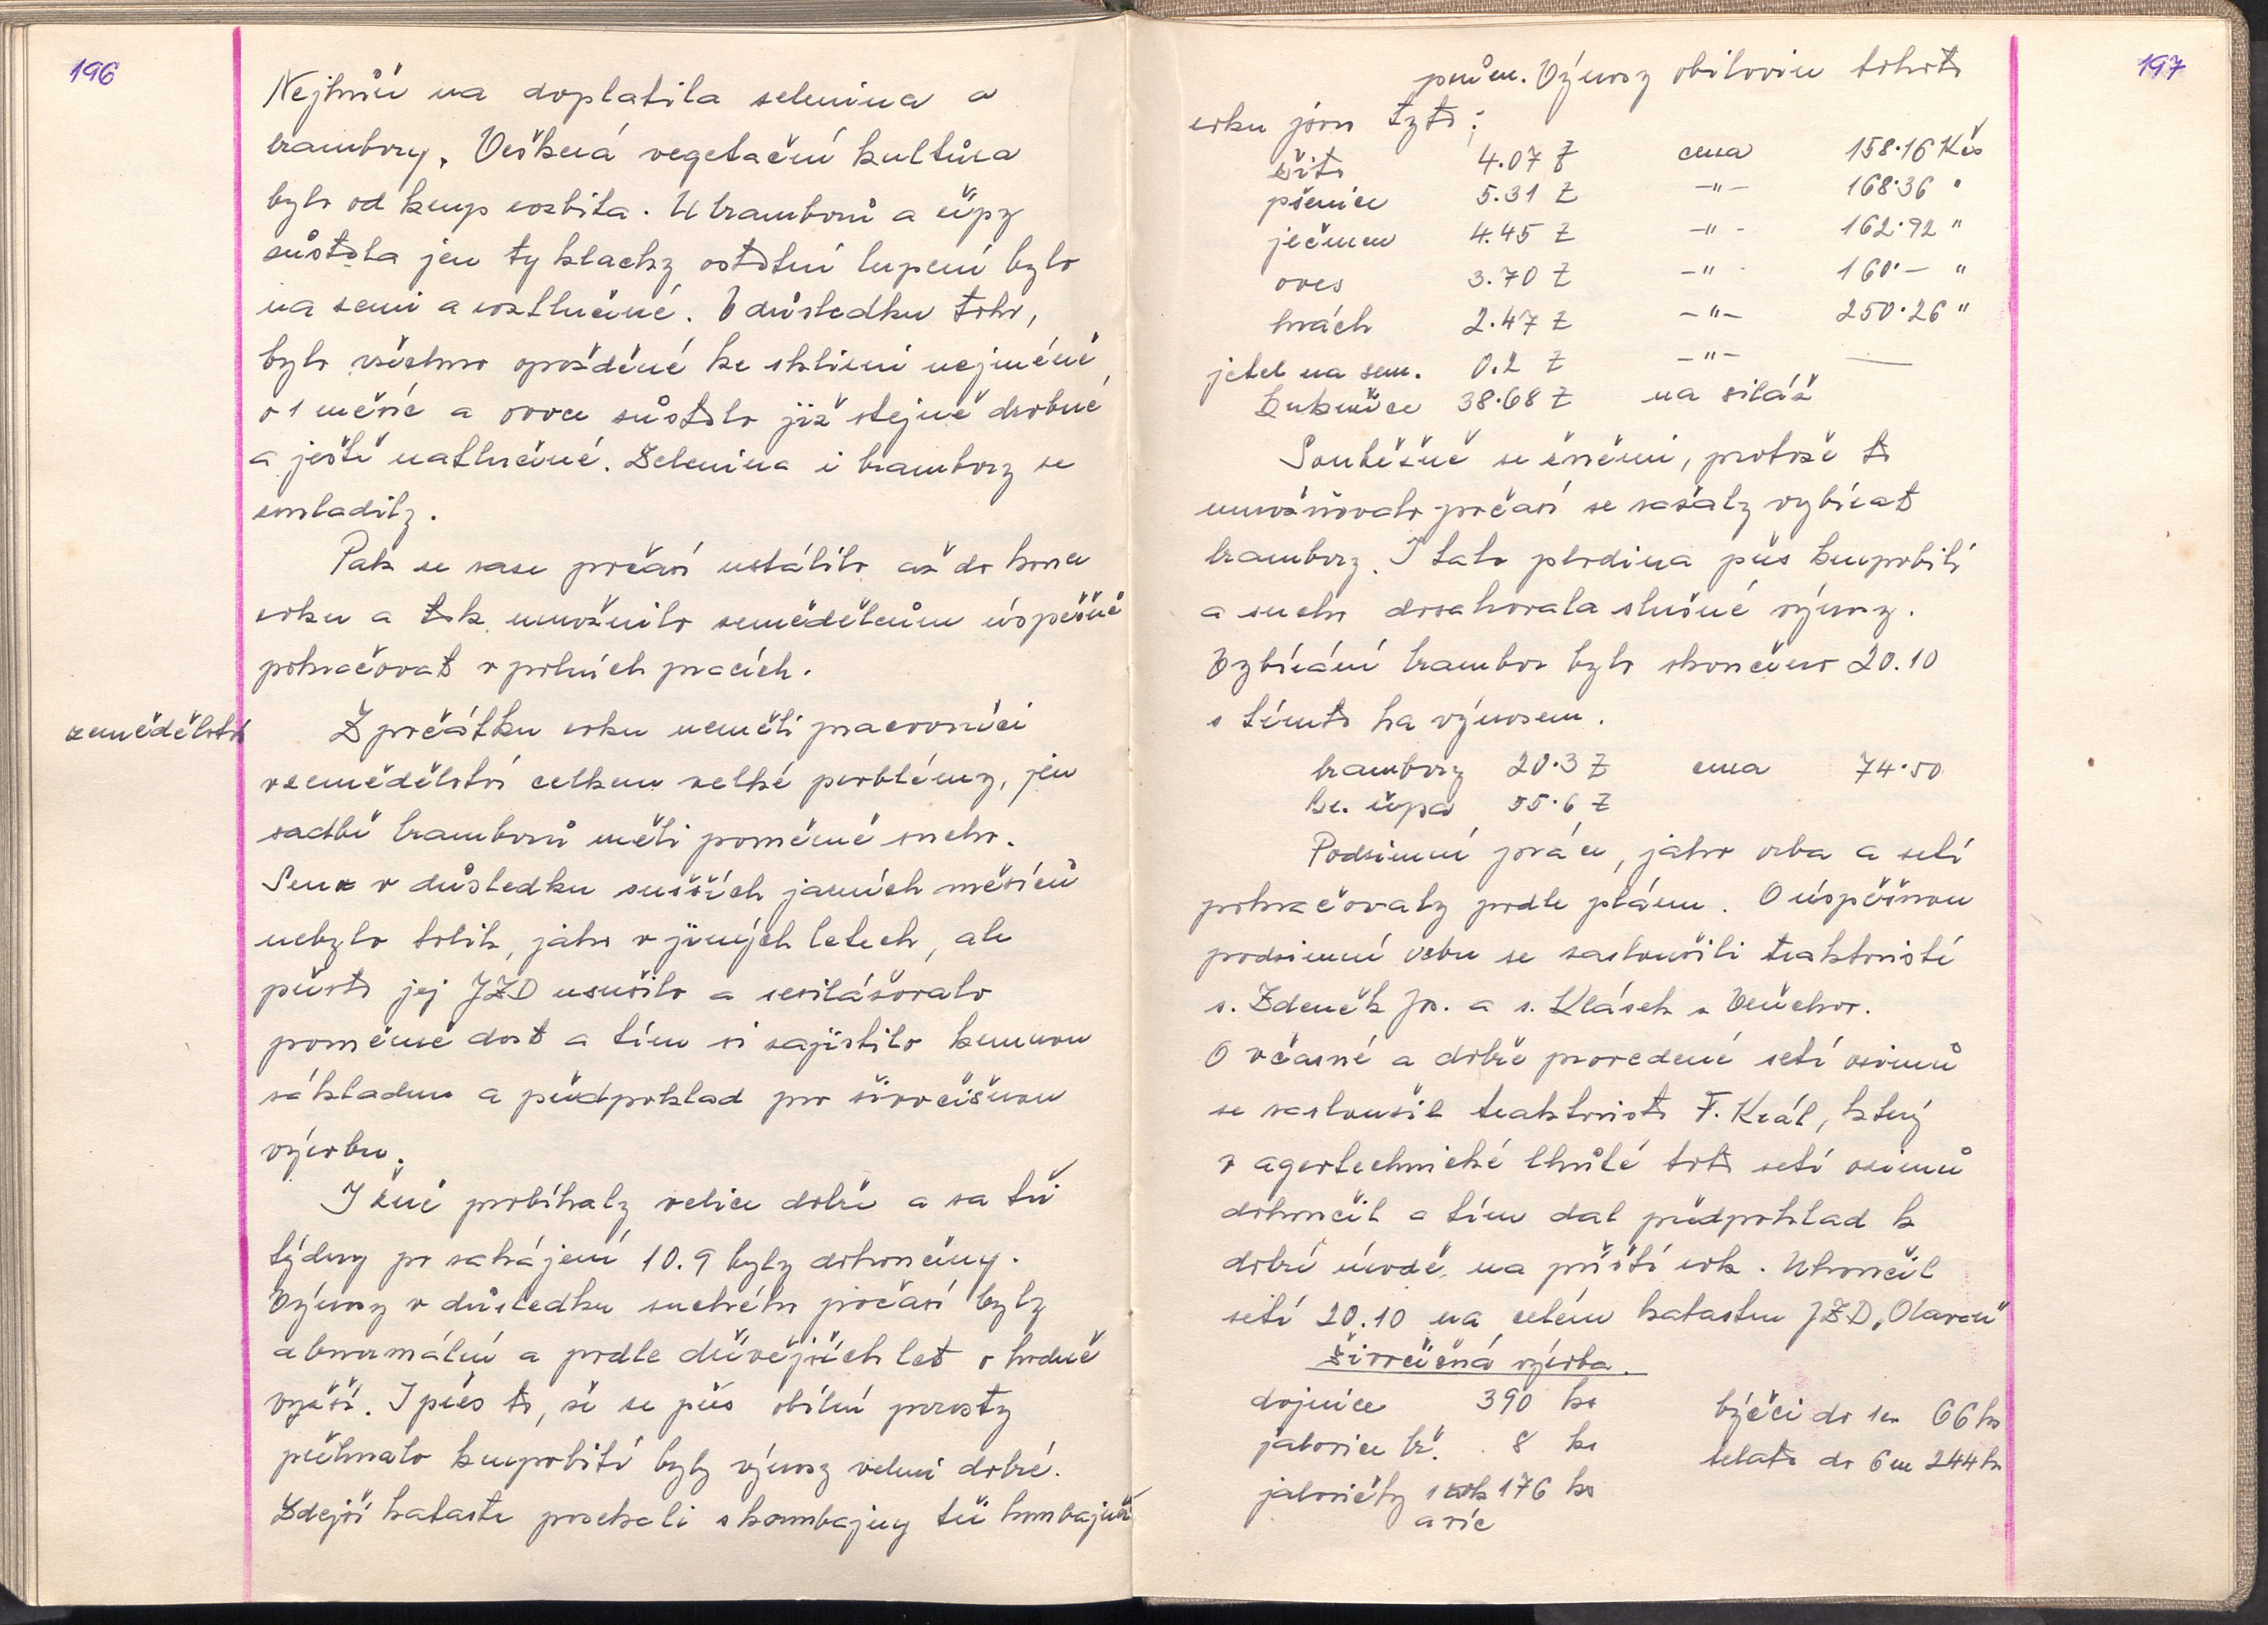 196
Nejhůř na doplatila zelenina a
brambory. Veškerá vegetační kultůra
bylo od krup rozbita. U bramborů a řepy
zůstala jen ty klacky ostatní lupení bylo
na zemi a roztlučené. V důsledku toho,
bylo všechno opožděné ke sklizni nejméně
o 1 měsíc a ovoce zůstalo již stejně drobné
a ještě natlučené. Zelenina i brambory se
omladily.
Pak se zase počasí ustálilo až do konce
roku a tak umožnilo zemědělcům úspěšně
pokračovat v polních pracích.
zemědělství
Z počátku roku neměli pracovníci
v zemědělství celkem velké problémy, jen
sadbě bramborů měli poměrně sucho.
Sena v důsledku sušších jarních měsíců
nebylo tolik, jako v jiných letech, ale
přesto jej JZD usušilo a sesilážovalo
poměrně dost a tím si zajistilo krmnou
základnu a předpoklad pro živočišnou
výrobu.
I žně probíhaly velice dobře a za tři
týdny po zahájení 10.9 byly dokončeny.
Výnosy v důsledku suchého počasí byly
abnormální a podle dřívějších let o hodně
vyšší. I přes to, že se přes obilní porosty
přehnalo krupobití byly výnosy velmi dobré.
Zdejší katastr posekali s kombajny tři kombajnéři
197
prům. Výnosy obilovin tohoto
roku jsou tyto:
žito 4.07 t cena 158.16 Kčs
pšenice 5.31 t -"- 168.36 "
ječmen 4.45 t -"- 162.92 "
oves 3.70 t -"- 160.- "
hrách 2.47 t -"- 250.26 "
jetel na sem. 0.2 t -"- —
kukuřice 38.68 t na siláž
Souběžně se žněmi, protože to
umožňovalo počasí se začaly vybírat
brambory. I tato plodina přes krupobití
a sucho dosahovala slušné výnosy.
Vybírání brambor bylo skončeno 20.10
s tímto ha výnosem.
brambory 20.3 t cena 74.50
kr. řepa 55.6 t
Podzimní práce, jako orba a setí
pokračovaly podle plánu. O úspěšnou
podzimní orbu se zasloužili traktoristé
s. Zdeněk Jos. a s. Klásek z Venchor.
O včasné a dobře provedené setí ozimů
se zasloužil traktorista F. Král, který
v agrotechnické lhůtě toto setí ozimů
dokončil a tím dal předpoklad k
dobré úrodě na příští rok. Ukončil
setí 20.10 na celém katastru JZD „Olavou"
Živočišná výroba.
dojnice 390 ks býčci do 1 r. 66 ks
jalovice bř. 8 ks telata do 6 m 244 ks
jalovičky 1 rok 176 ks
a víc